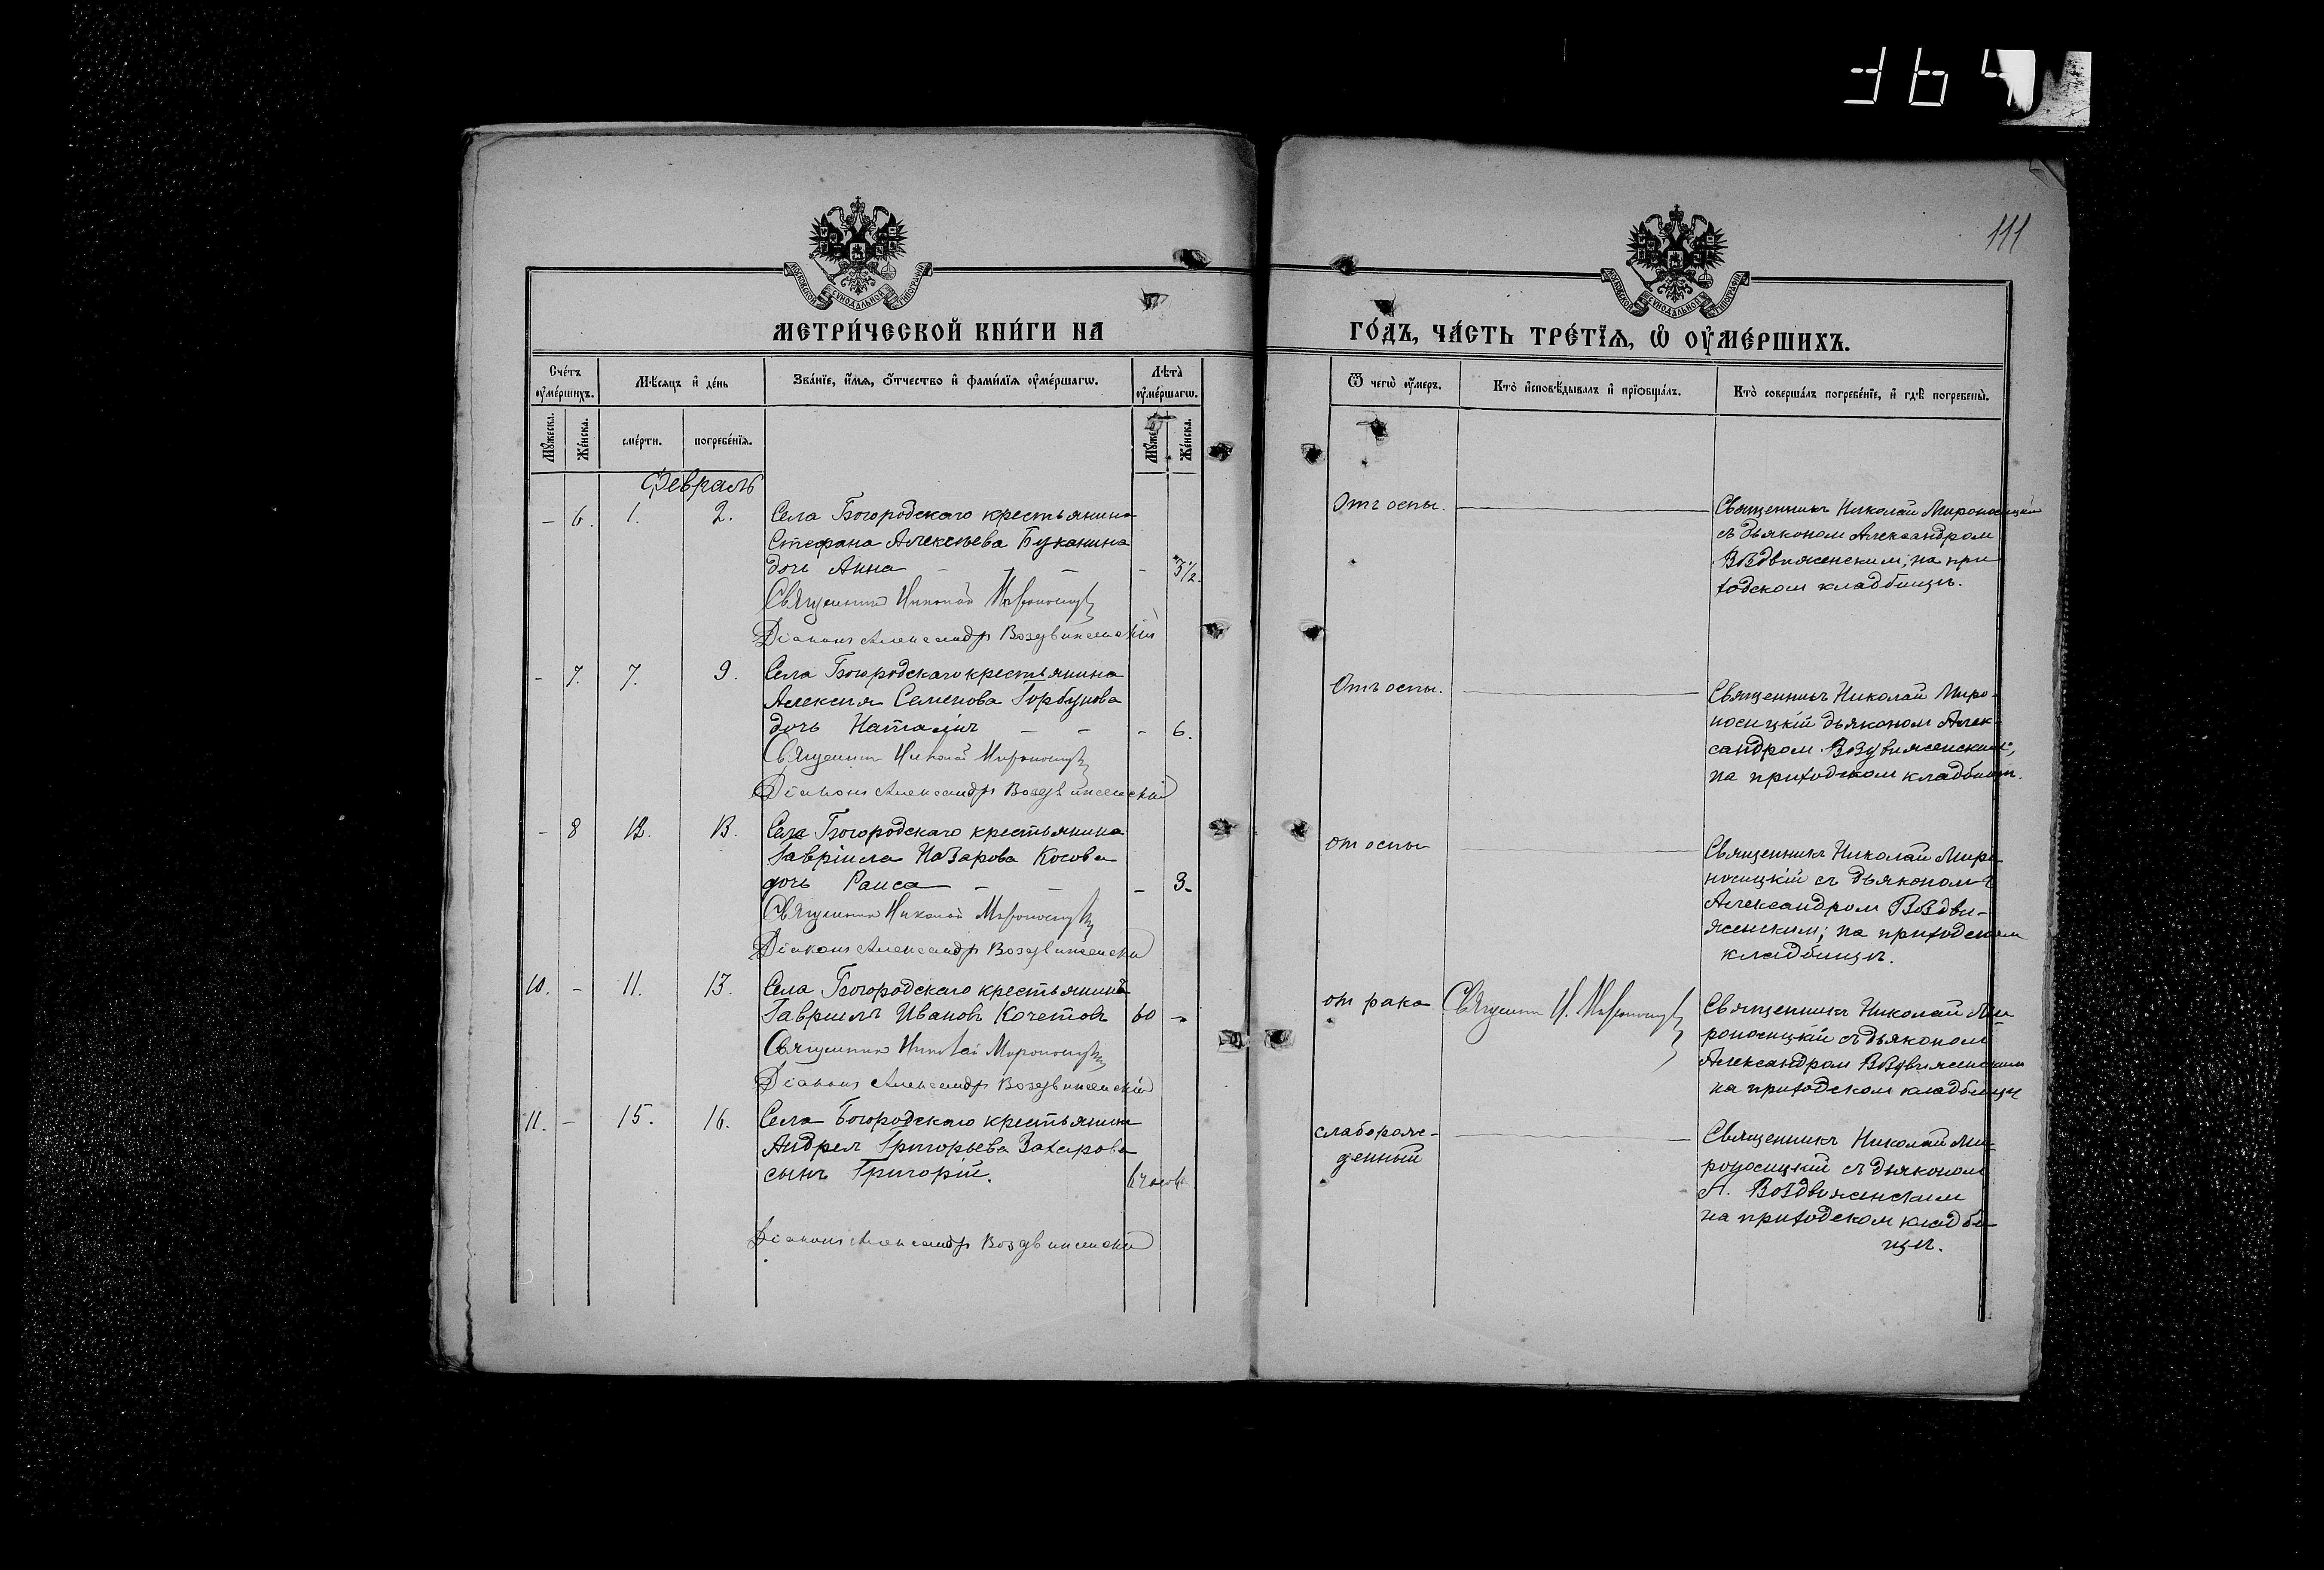 364
111
МОСКОВСКОЙ СѴНОДАЛЬНОЙ ТИПОГРАФІИ
МОСКОВСКОЙ СѴНОДАЛЬНОЙ ТИПОГРАФІИ
МЕТРИ́ЧЕСКОЙ КНИ́ГИ НА
ГО́ДЪ, ЧА́СТЬ ТРЕ́ТЇѦ, Ѡ҆ ОУ҆МЕ́РШИХЪ.
Сче́тъ оу҆ме́ршихъ.
Мѣ́сѧцъ и҆ де́нь
Зва́нїе, и҆́мѧ, ѻ҆́тчество и҆ фами́лїѧ оу҆ме́ршагѡ.
Лѣ̑та оу҆ме́ршагѡ.
Ѿ чегѡ̀ оу҆́меръ.
Кто̀ и҆сповѣ́дывалъ и҆ прїѻбща́лъ.
Кто̀ соверша́лъ погребе́нїе, и҆ гдѣ̀ погребены̀.
Мꙋ́жеска.
Же́нска.
сме́рти.
погребе́нїѧ.
Мꙋ́жес
Же́нска.
Февраль
– 6. 1. 2. Села Богородскаго крестьянина
Стефана Алексѣева Буканина
дочь Анна – – – – 3½.
Священникъ Николай Мироносицкій
Діаконъ Александръ Воздвиженскій
Отъ оспы.
Священникъ Николай Мироносицкий
съ дьяконом Александром
Воздвиженским; на при
ходском кладбищѣ.
– 7. 7. 9. Села Богородскаго крестьянина
Алексія Семенова Горбунова
дочь Наталія – – – 6.
Священникъ Николай Мироносицкій
Діаконъ Александръ Воздвиженскій
Отъ оспы.
Священникъ Николай Миро-
носицкій дьяконом Алек-
сандром Воздвиженским;
на приходском кладбищѣ.
– 8 12. 13. Села Богородскаго крестьянина
Гавріила Назарова Косова
дочь Раиса – – – 3.
Священникъ Николай Мироносицкій
Діаконъ Александръ Воздвиженскій
от оспы
Священникъ Николай Миро-
носицкій съ дьякономъ
Александром Воздви-
женским; на приходском
кладбищѣ.
10. – 11. 13. Села Богородскаго крестьянинъ
Гавриилъ Ивановъ Кочетовъ 60 –
Священникъ Николай Мироносицкій
Діаконъ Александръ Воздвиженскій
от рака
Священникъ Н. Мироносицкій
Священникъ Николай Ми-
роносицкій съ дьяконом
Александром Воздвиженским
на приходском кладбищѣ
11. – 15. 16. Села Богородскаго крестьянина
Андрея Григорьева Захарова
сынъ Григорій. 6 часовъ
Діаконъ Александръ Воздвиженскій
слаборож-
денный
Священникъ Николай Ми-
роносицкий съ дьяконом
А. Воздвиженским
на приходском кладби-
щѣ.